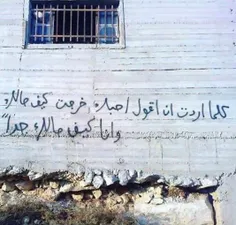 كلما اردت ان اقول احبك، خرجت كيف حالك؟
وانا كيف حالك جداً